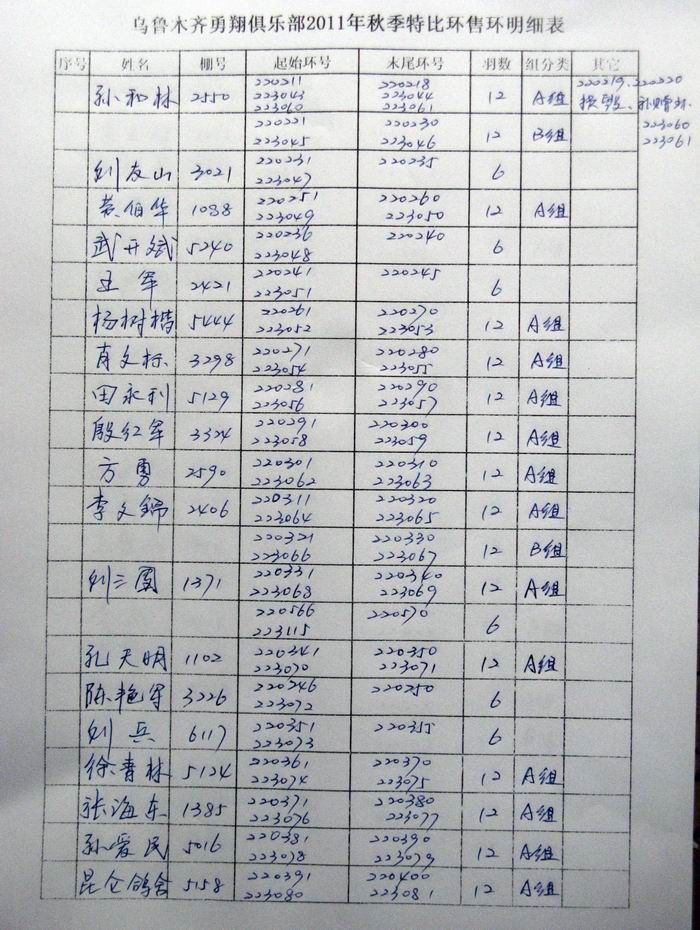 乌鲁木齐勇翔俱乐部2011年秋季特比环售环明细表
序号 姓名 棚号 起始环号 末尾环号 羽数 组分类 其它
孙和林 2550 220211 220218 12 A组 220219、220220
223043 223044 补赠环
223060 223061 223060
220221 220230 12 B组 223061
223045 223046
刘友山 3021 220231 220235 6
223047
黄伯华 1088 220251 220260 12 A组
223049 223050
武开斌 5240 220236 220240 6
223048
王军 2421 220241 220245 6
223051
杨树楷 5444 220261 220270 12 A组
223052 223053
肖文标 3298 220271 220280 12 A组
223054 223055
田永利 5129 220281 220290 12 A组
223056 223057
殷红军 3324 220291 220300 12 A组
223058 223059
方勇 2590 220301 220310 12 A组
223062 223063
李文锦 2406 220311 220320 12 A组
223064 223065
220321 220330 12 B组
223066 223067
刘三圆 1371 220331 220340 12 A组
223068 223069
220566 220570 6
223115
孔天明 1102 220341 220350 12 A组
223070 223071
陈艳军 3226 220246 220250 6
223072
刘兵 6117 220351 220355 6
223073
徐春林 5124 220361 220370 12 A组
223074 223075
张海东 1385 220371 220380 12 A组
223076 223077
孙爱民 5016 220381 220390 12 A组
223078 223079
昆仑鸽舍 5158 220391 220400 12 A组
223080 223081